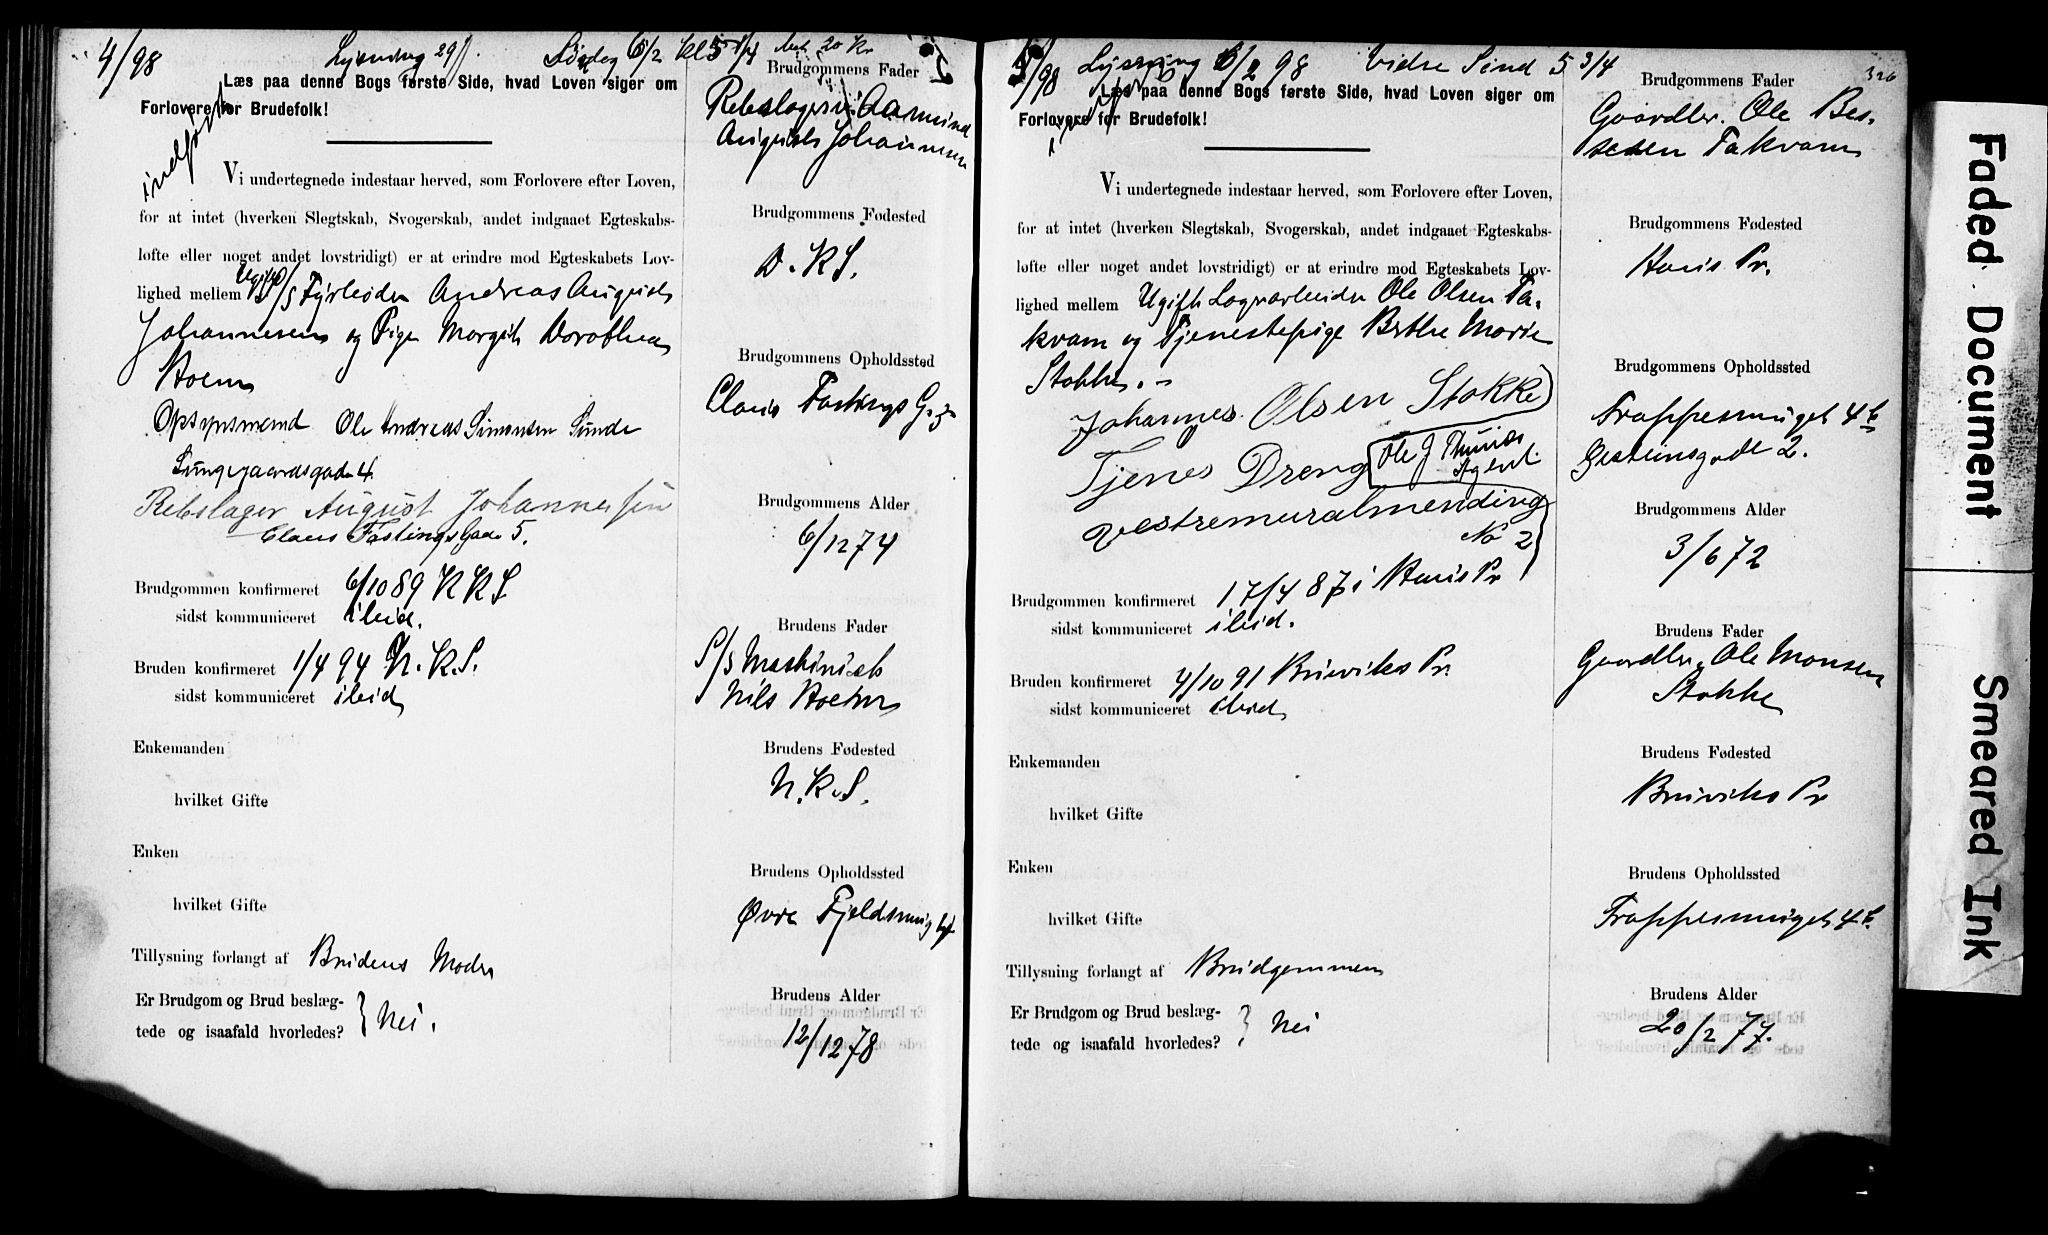 4/98 Lysning 29/1. Søndag 6/2 Kl 5 1/4 bet. 20 Kr
Læs paa denne Bogs første Side, hvad Loven siger om
Forlovere for Brudefolk!
indført
Vi undertegnede indestaar herved, som Forlovere efter Loven,
for at intet (hverken Slegtskab, Svogerskab, andet indgaaet Egteskabs-
løfte eller noget andet lovstridigt) er at erindre mod Egteskabets Lov-
lighed mellem Ugift S/S Fyrbøder Andreas August
Johannesen og Pige Margit Dorothea
Hoem
Opsynsmend Ole Andreas Simonsen Sunde
Lungegaardsgade 4
Rebslager August Johannesen
Claus Fastings Gade 5.
Brudgommen konfirmeret 6/10 89 K K S
sidst kommuniceret ibid.
Bruden konfirmeret 1/4 94 N. K. S.
sidst kommuniceret ibid
Enkemanden
hvilket Gifte
Enken
hvilket Gifte
Tillysning forlangt af Brudens Moder
Er Brudgom og Brud beslæg-
tede og isaafald hvorledes? } Nei.
Brudgommens Fader
Rebslagersv. Aamund
August Johannesen
Brudgommens Fødested
D. K S.
Brudgommens Opholdssted
Claus Fastings G. 5
Brudgommens Alder
6/12 74
Brudens Fader
S/S Maskinist
Nils Hoem
Brudens Fødested
N. K. S.
Brudens Opholdssted
Øvre Fjeldsmug
Brudens Alder
12/12 78
5/98 Lysning 6/2 98 Vidse Sind 5 3/4
326
Læs paa denne Bogs første Side, hvad Loven siger om
Forlovere for Brudefolk!
indført
Vi undertegnede indestaar herved, som Forlovere efter Loven,
for at intet (hverken Slegtskab, Svogerskab, andet indgaaet Egteskabs-
løfte eller noget andet lovstridigt) er at erindre mod Egteskabets Lov-
lighed mellem Ugift Lagerarbeider Ole Olsen Ta-
kvam og Tjenestepige Brthe Marie
Stokke. –
Johannes Olsen Stokke
Tjenes Dreng
Ole J Thunæs
Agent.
vestremuralmending
No 2
Brudgommen konfirmeret 17/4 87 i Haus Pr
sidst kommuniceret ibid.
Bruden konfirmeret 4/10 91 Bruviks Pr.
sidst kommuniceret ibid
Enkemanden
hvilket Gifte
Enken
hvilket Gifte
Tillysning forlangt af Brudgommen
Er Brudgom og Brud beslæg-
tede og isaafald hvorledes? } Nei
Brudgommens Fader
Gaardbr. Ole Bes-
sesen Takvam
Brudgommens Fødested
Haus Pr.
Brudgommens Opholdssted
Trappesmuget 4 b
Gesteinsgade 2.
Brudgommens Alder
3/6 72
Brudens Fader
Gaardbr. Ole Monsen
Stokke
Brudens Fødested
Bruviks Pr
Brudens Opholdssted
Trappesmuget 4 b.
Brudens Alder
20/2 77.
Faded Document
Smeared Ink